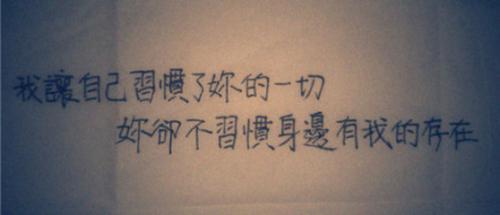 我讓自己習慣了妳的一切
妳卻不習慣身邊有我的存在